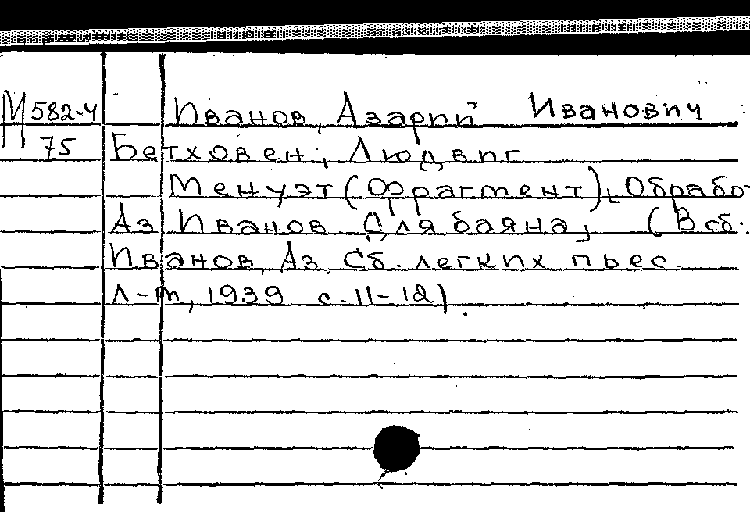 М 582-4 Иванов, Азарий Иванович
75 Бетховен, Людвиг
Менуэт (Фрагмент), Обрабо
Аз Иванов Для баяна, (В сб.:
Иванов, Аз. Сб. легких пьес.
Л-м, 1939 с. 11-12).